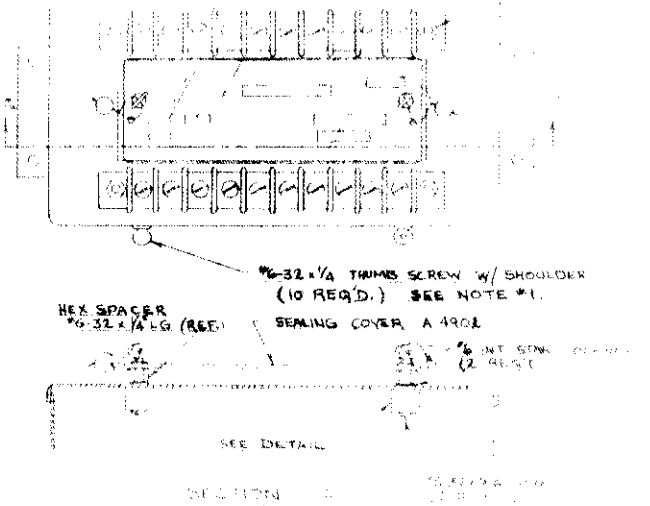 #6-32 x 1/4 THUMB SCREW W/ SHOULDER
(10 REQ'D.) SEE NOTE #1.
HEX SPACER
#6-32 x 1/4 LG (REF)
SEALING COVER A 4902
#6 INT STAR
(2
SEE DETAIL
SECTION